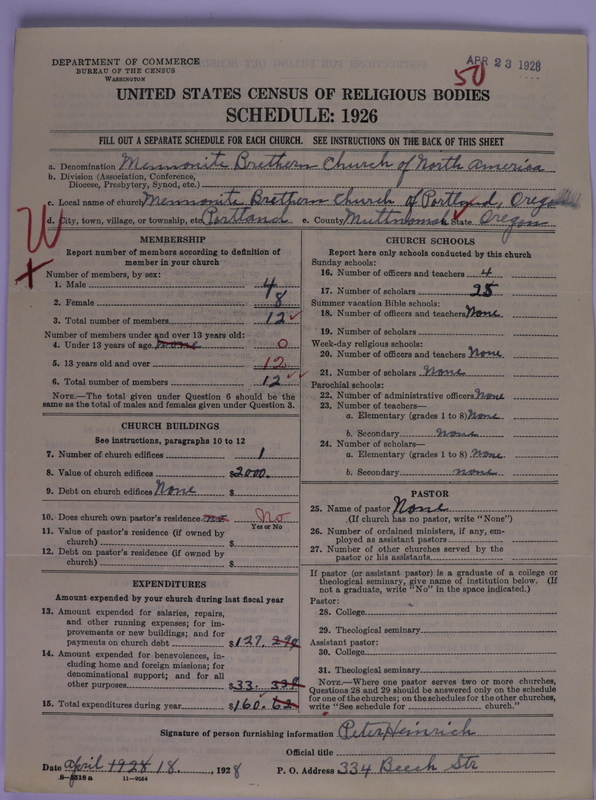 DEPARTMENT OF COMMERCE
BUREAU OF THE CENSUS
WASHINGTON
APR 23 1928
50
UNITED STATES CENSUS OF RELIGIOUS BODIES
SCHEDULE: 1926
FILL OUT A SEPARATE SCHEDULE FOR EACH CHURCH. SEE INSTRUCTIONS ON THE BACK OF THIS SHEET
a. Denomination Mennonite Brethern Church of North America
b. Division (Association, Conference,
Diocese, Presbytery, Synod, etc.)
c. Local name of church Mennonite Brethern Church of Portland, Oregon
d. City, town, village, or township, etc. Portland e. County Multnomah State Oregon
W
+
MEMBERSHIP
Report number of members according to definition of
member in your church
Number of members, by sex:
1. Male 4
2. Female 8
3. Total number of members 12 ✓
Number of members under and over 13 years old:
4. Under 13 years of age None 0
5. 13 years old and over 12
6. Total number of members 12 ✓
NOTE.—The total given under Question 6 should be the
same as the total of males and females given under Question 3.
CHURCH BUILDINGS
See instructions, paragraphs 10 to 12
7. Number of church edifices 1
8. Value of church edifices $2000.
9. Debt on church edifices None $
10. Does church own pastor's residence no No
Yes or No
11. Value of pastor's residence (if owned by
church) $
12. Debt on pastor's residence (if owned by
church) $
EXPENDITURES
Amount expended by your church during last fiscal year
13. Amount expended for salaries, repairs,
and other running expenses; for im-
provements or new buildings; and for
payments on church debt $127. 29
14. Amount expended for benevolences, in-
cluding home and foreign missions; for
denominational support; and for all
other purposes $33. 33
15. Total expenditures during year $160. 62
CHURCH SCHOOLS
Report here only schools conducted by this church
Sunday schools:
16. Number of officers and teachers 4
17. Number of scholars 25
Summer vacation Bible schools:
18. Number of officers and teachers None
19. Number of scholars
Week-day religious schools:
20. Number of officers and teachers None
21. Number of scholars None
Parochial schools:
22. Number of administrative officers None
23. Number of teachers—
a. Elementary (grades 1 to 8) None
b. Secondary none
24. Number of scholars—
a. Elementary (grades 1 to 8) None
b. Secondary none
PASTOR
25. Name of pastor None
(If church has no pastor, write "None")
26. Number of ordained ministers, if any, em-
ployed as assistant pastors
27. Number of other churches served by the
pastor or his assistants
If pastor (or assistant pastor) is a graduate of a college or
theological seminary, give name of institution below. (If
not a graduate, write "No" in the space indicated.)
Pastor:
28. College
29. Theological seminary
Assistant pastor:
30. College
31. Theological seminary
NOTE.—Where one pastor serves two or more churches,
Questions 28 and 29 should be answered only on the schedule
for one of the churches; on the schedules for the other churches,
write "See schedule for church."
Signature of person furnishing information Peter Heinrich
Official title
Date April 1928 18., 1928 P. O. Address 334 Beech Str
8-5518a 11-9554